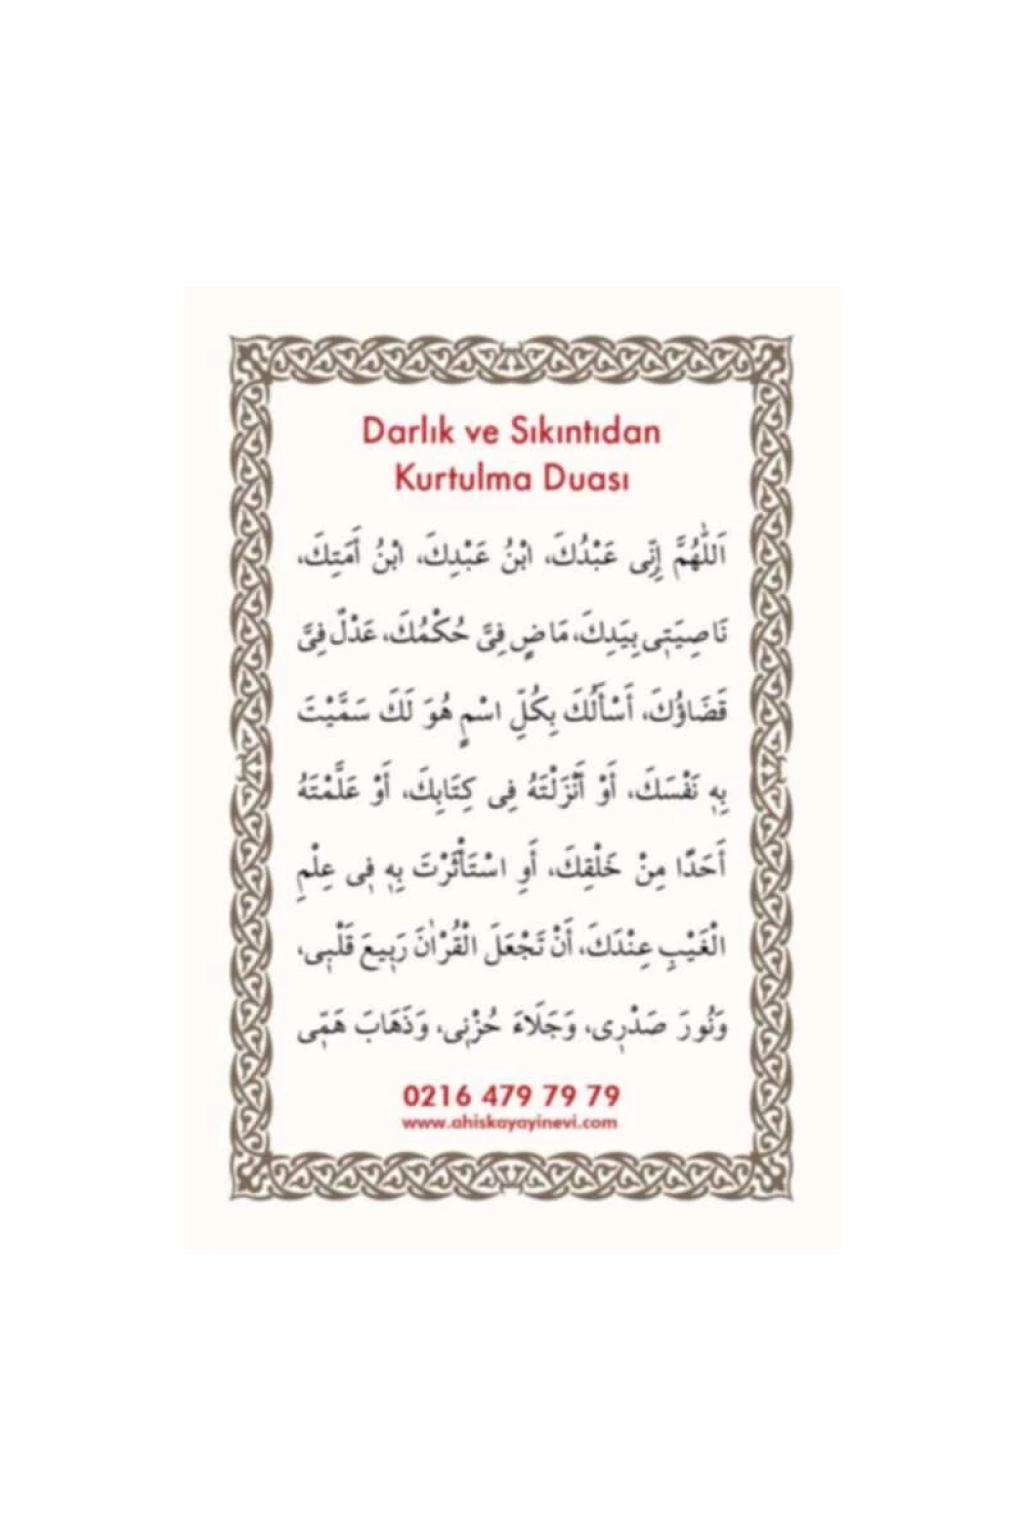 Darlık ve Sıkıntıdan
Kurtulma Duası
اَللّٰهُمَّ إِنِّى عَبْدُكَ، ابْنُ عَبْدِكَ، ابْنُ أَمَتِكَ،
نَاصِيَتِى بِيَدِكَ، مَاضٍ فِىَّ حُكْمُكَ، عَدْلٌ فِىَّ
قَضَاؤُكَ، أَسْأَلُكَ بِكُلِّ اسْمٍ هُوَ لَكَ سَمَّيْتَ
بِهِ نَفْسَكَ، أَوْ أَنْزَلْتَهُ فِى كِتَابِكَ، أَوْ عَلَّمْتَهُ
أَحَدًا مِنْ خَلْقِكَ، أَوِ اسْتَأْثَرْتَ بِهِ فِى عِلْمِ
الْغَيْبِ عِنْدَكَ، أَنْ تَجْعَلَ الْقُرْاٰنَ رَبِيعَ قَلْبِى،
وَنُورَ صَدْرِى، وَجَلَاءَ حُزْنِى، وَذَهَابَ هَمِّى
0216 479 79 79
www.ahiskayayinevi.com